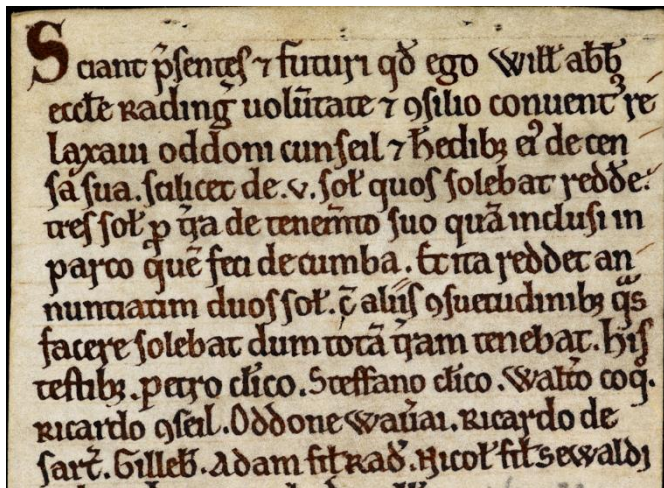 Sciant p̄sentes ⁊ futuri qđ ego Will̵ abb̄
eccl̵e Rading̵ uolūtate ⁊ ꝯsilio conuentꝰ re
laxaui oddoni cunseil ⁊ h̵edibꝫ eiꝰ de cen
sa sua. scilicet de .v. sol̵ quos solebat redde᷒:
tres sol̵ ꝑ t̄ra de tenem̄to suo quā inclusi in
parco quē feci de cumba. Et ita reddet an
nuntiatim duos sol̵. c̄ aliis ꝯsuetudinibꝫ q̄s
facere solebat dum totā t̄ram tenebat. His
testibꝫ. petro cl̵ico. Steffano cl̵ico. Walt̄o coq̄.
Ricardo ꝯseil. Oddone wau̅ai. Ricardo de
sart̄. Gilleb̵. Adam fil̵ Rad̵. Nicol̵ fil̵ sewaldi